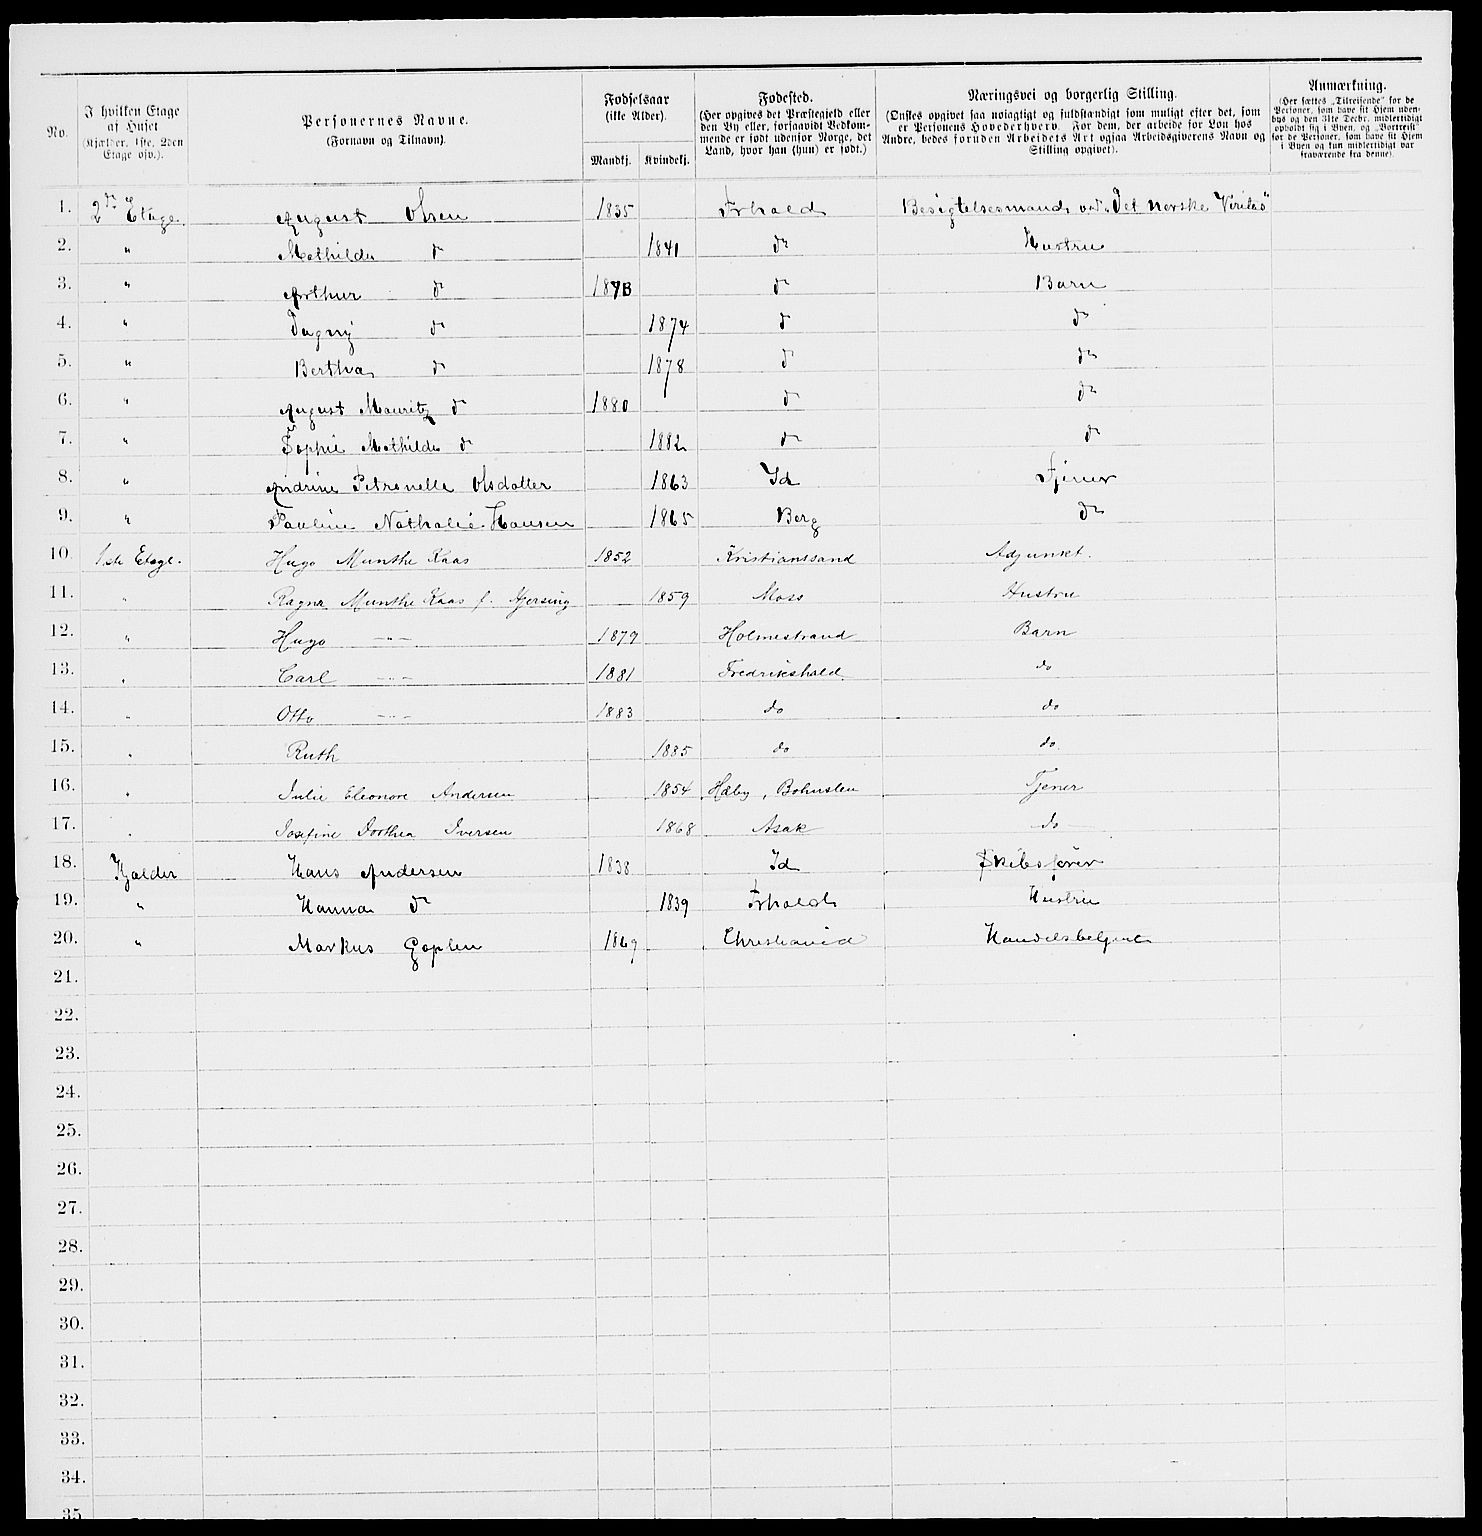 No.
I hvilken Etage af Huset (Kjælder, 1ste, 2den Etage osv.).
Personernes Navne. (Fornavn og Tilnavn).
Fødselsaar (ikke Alder).
Mandkj. Kvindekj.
Fødested. (Her opgives det Præstegjeld eller den By eller, forsaavidt Vedkommende er født udenfor Norge, det Land, hvor han (hun) er født.)
Næringsvei og borgerlig Stilling. (Ønskes opgivet saa nøiagtigt og fuldstændigt som muligt efter det, som er Personens Hovederhverv. For dem, der arbeide for Løn hos Andre, bedes foruden Arbeidets Art ogsaa Arbeidsgiverens Navn og Stilling opgivet).
Anmærkning. (Her sættes „Tilreisende" for de Personer, som have sit Hjem udenbys og den 31te Decbr. midlertidigt opholdt sig i Byen, og „Bortreist" for de Personer, som have sit Hjem i Byen og kun midlertidigt var fraværende fra denne).
1. 2den Etage. August Olsen 1835 Frhald Besigtelsesmand ved Det norske Veritas
2. " Mathilde do 1841 do Hustru
3. " Arthur do 1873 do Barn
4. " Dagny do 1874 do do
5. " Bertha do 1878 do do
6. " August Mauritz do 1880 do do
7. " Sophie Mathilde do 1882 do do
8. " Andrine Petronelle Olsdatter 1863 Id Tjener
9. " Pauline Nathalie Hansen 1865 Berg do
10. 1ste Etage. Hugo Munthe Kaas 1852 Kristianssand Adjunkt.
11. " Ragna Munthe Kaas f. 1859 Moss Hustru
12. " Hugo —"— 1879 Holmestrand Barn
13. " Carl —"— 1881 Fredrikshald do
14. " Otto —"— 1883 do do
15. " Ruth 1885 do do
16. " Julie Eleonore Andersen 1854 Hæby, Bohuslen Tjener
17. " Josefine Dorthea Iversen 1868 Asak do
18. Kjælder Hans Andersen 1838 Id Skibsfører
19. " Hanna do 1839 Frhald Hustru
20. " Markus Goplen 1869 Christiania Handelsbetjent
21.
22.
23.
24.
25.
26.
27.
28.
29.
30.
31.
32.
33.
34.
35